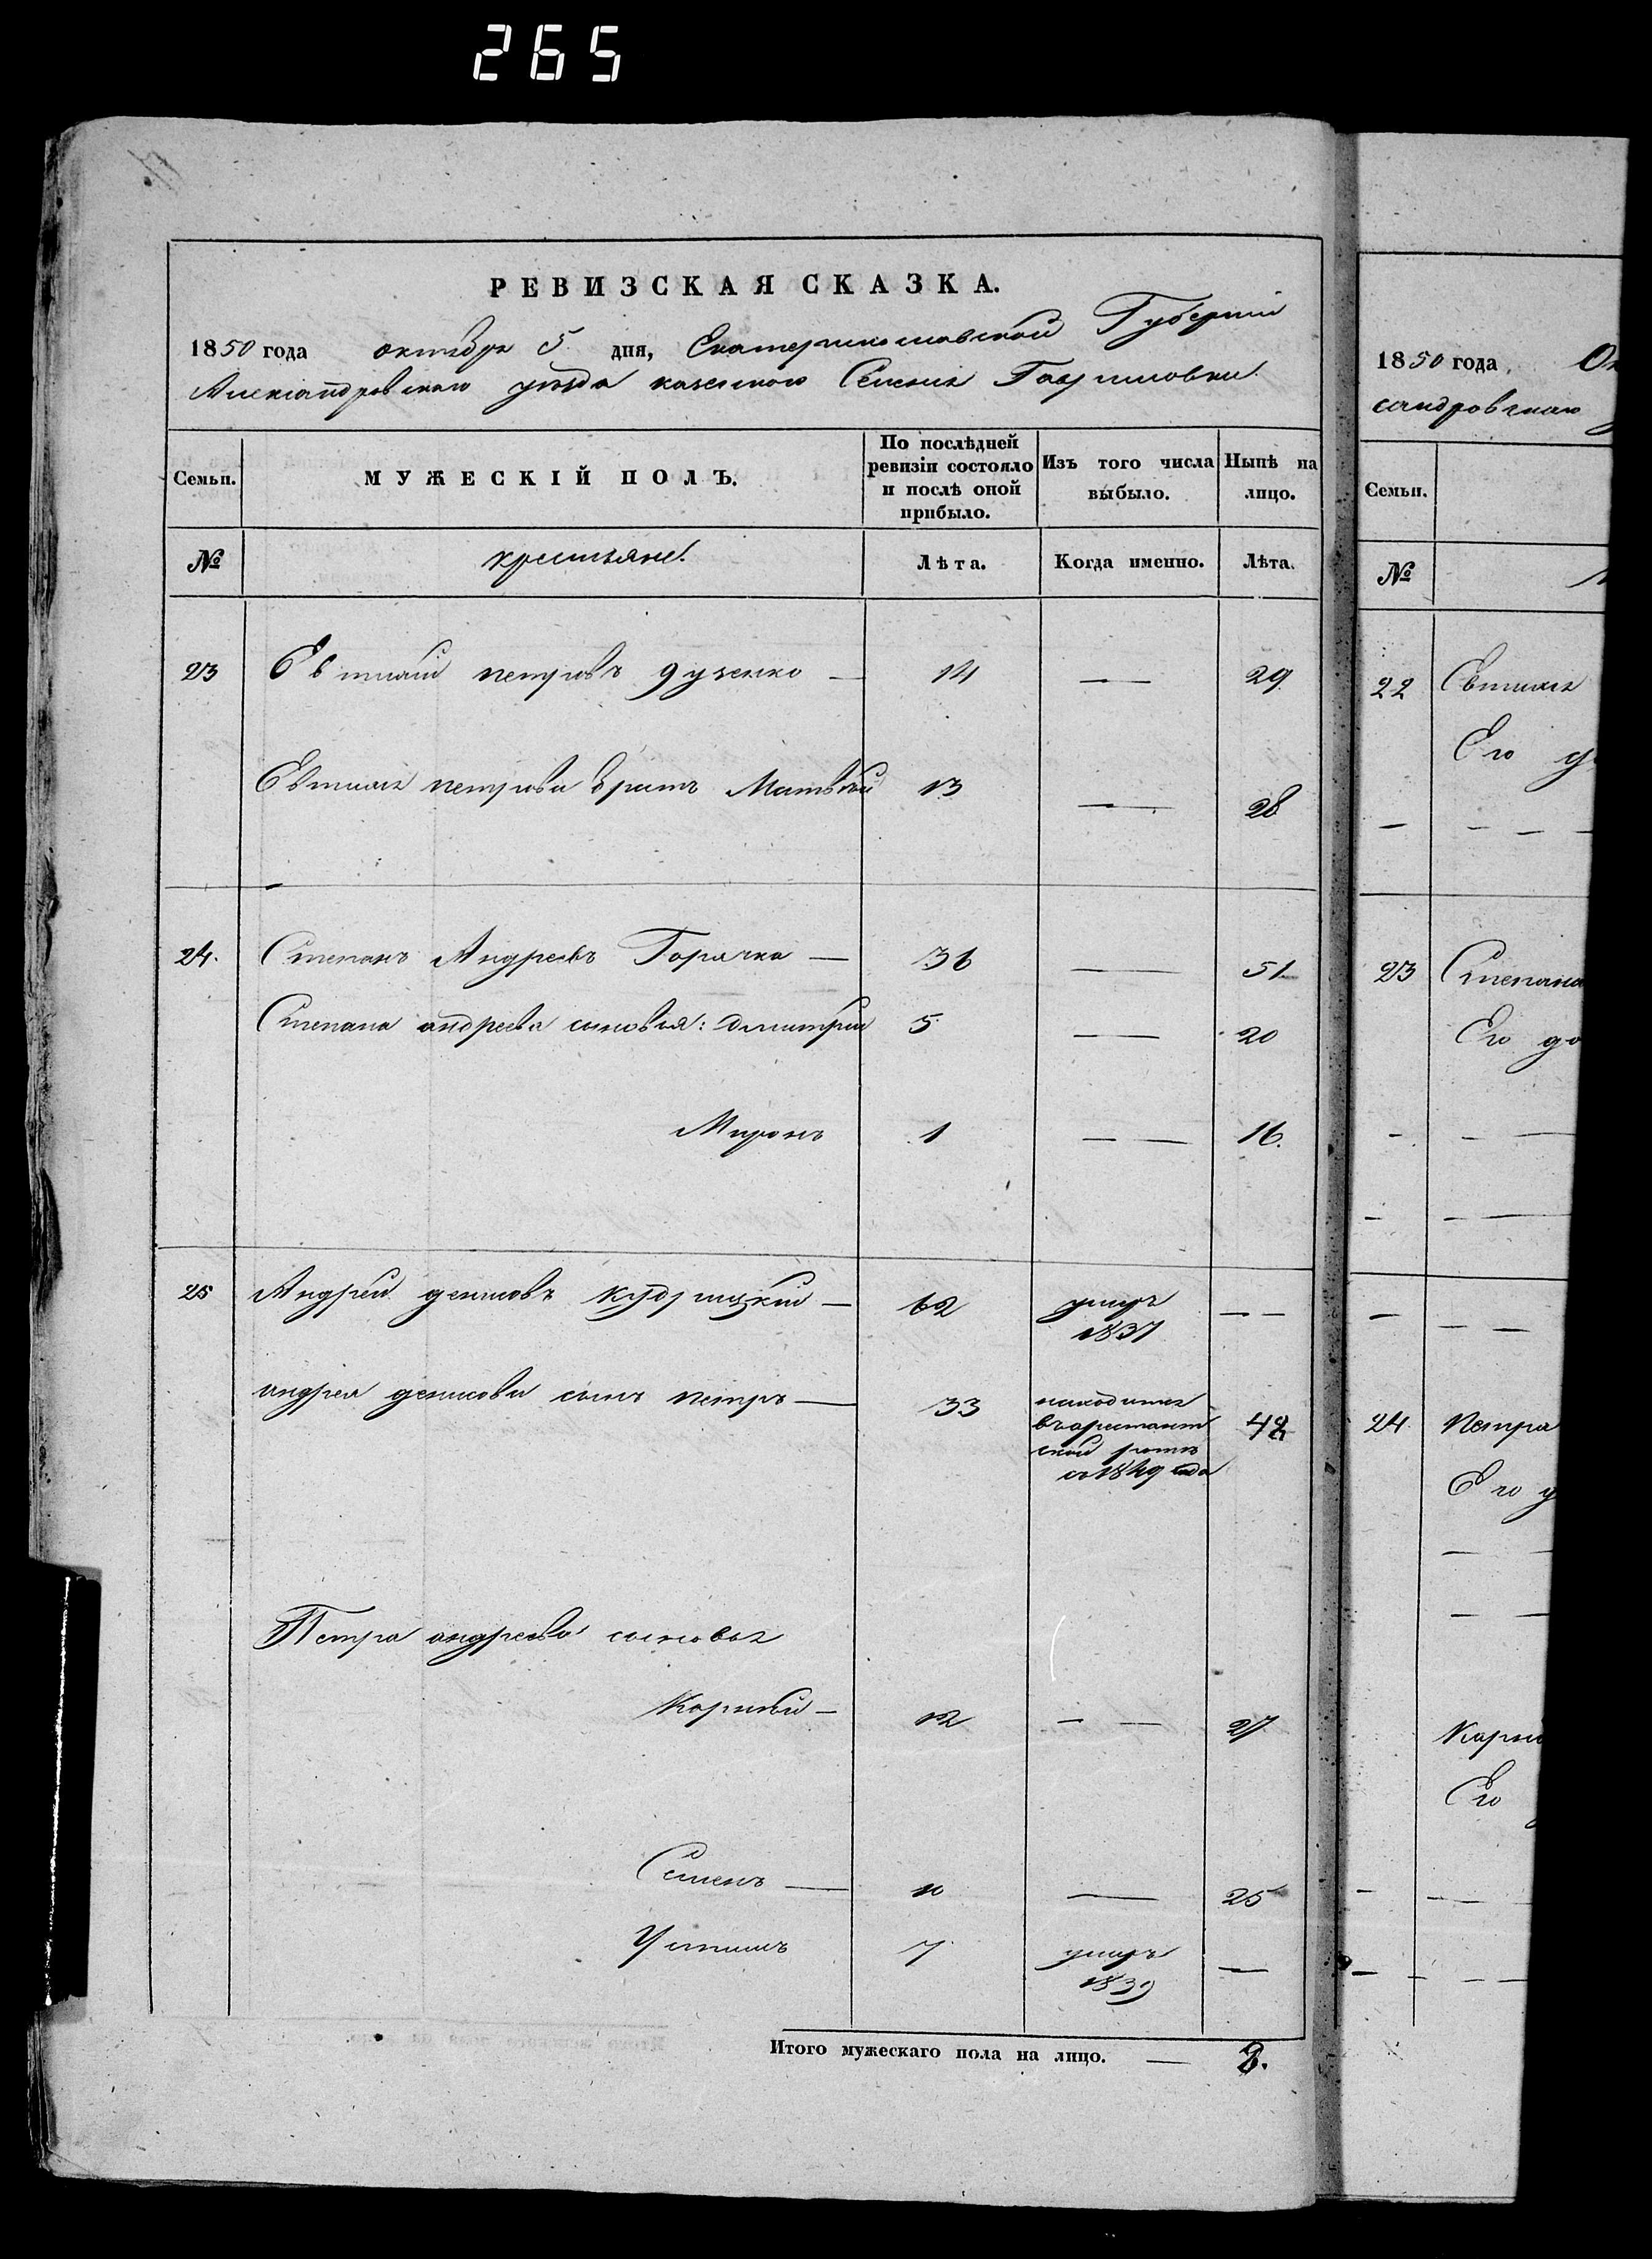 265
РЕВИЗСКАЯ СКАЗКА.
1850 года октября 5 дня, Екатеринославской Губернии
Александровского уезда казенного Селения Гавриловки
Семьи. МУЖЕСКІЙ ПОЛЪ. По послѣдней ревизіи состояло и послѣ оной прибыло. Изъ того числа выбыло. Нынѣ на лицо.
№ крестьяне. Лѣта. Когда именно. Лѣта.
23 Евтихий петровъ дузенко — 14 — 29
Евтихия петрова братъ Матвѣй 13 — 28
24. Степанъ Андреевъ Горячка — 36 — 51
Степана андреева сыновья: Дмитрий 5 — 20
Миронъ 1 — 16.
25 Андрей денисовъ кудрицкий — 62 умеръ 1837 —
андрея денисова сынъ петръ — 33 находится в арестантской роте с 1849 года 48
Петра андреева сыновья
Карпѣй — 12 — 27
Семенъ — 10 — 25
Устимъ 7 умеръ 1839 —
Итого мужескаго пола на лицо. — 8.
1850 года. Ок
сандровскаго
Семьи.
№
22 Евтихия
Его
23 Степана
Его до
24 Петра
Его
Карпѣ
Его